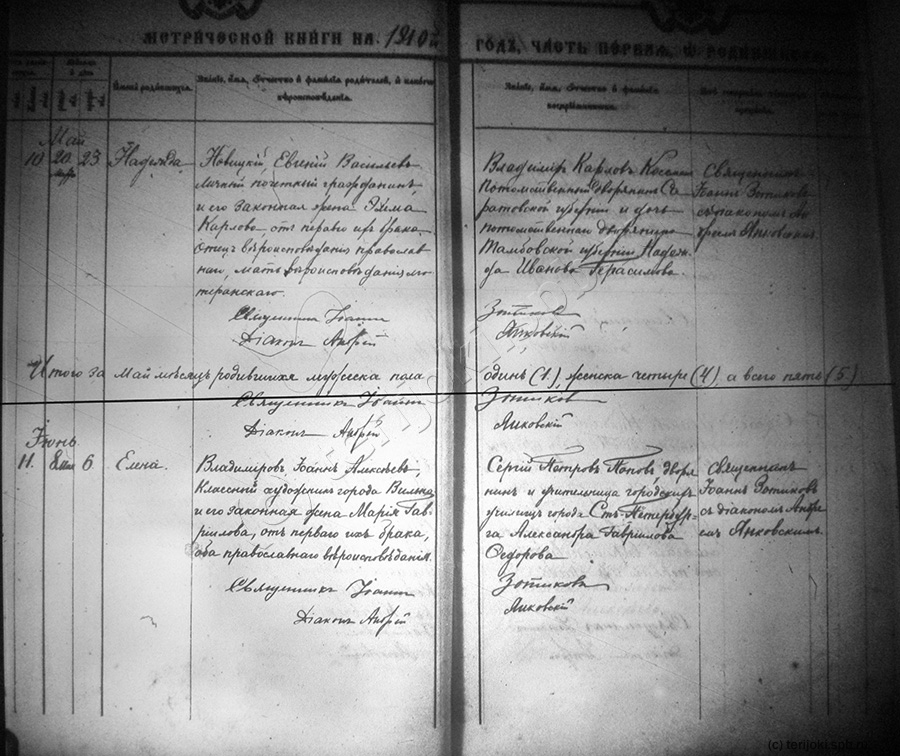 МЕТРИЧЕСКОЙ КНИГИ НА 1910й
ГОДЪ, ЧАСТЬ ПЕРВАЯ, О РОДИВШИХСЯ
Имена родившихся.
Званіе, имя, отчество и фамилія родителей, и какого
вѣроисповѣданія.
Званіе, имя, отчество и фамилія
воспріемниковъ.
Май
10 20 23 Надежда
Новицкій, Евгеній Васильевъ
личный почетный гражданинъ
и его законная жена Эмма
Карлова, отъ перваго ихъ брака.
Отецъ вѣроисповѣданія православ-
наго, мать вѣроисповѣданія лю-
теранскаго.
Священникъ Іоаннъ
Діаконъ Андрей
Владиміръ Карловъ
Потомственный дворянинъ Са-
ратовской губерніи и дочь
потомственнаго дворянина
Тамбовской губерніи Надеж-
да Иванова Герасимова.
Зотиковъ
Янковскій
Священникъ
Іоаннъ Зотиковъ
съ діакономъ Ан-
Янковскимъ.
Итого за Май мѣсяцъ родившихся мужеска пола
одинъ (1), женска четыре (4) а всего пять (5)
Священникъ Іоаннъ
Зотиковъ
Діаконъ Андрей
Янковскій
Іюнь
11. 6 Елена.
Владиміровъ Іоаннъ Алексѣевъ,
Классный художникъ города Вильна
и его законная жена Марія Гав-
ріилова, отъ перваго ихъ брака,
оба православнаго вѣроисповѣданія.
Священникъ Іоаннъ
Діаконъ Андрей
Сергій Петровъ Поповъ дворя-
нинъ и учительница городскихъ
училищъ города Стъ-Петербур-
га Александра Гавріилова
Ѳедорова
Зотиковъ
Янковскій
Священникъ
Іоаннъ Зотиковъ
съ діакономъ Андре-
емъ Янковскимъ.